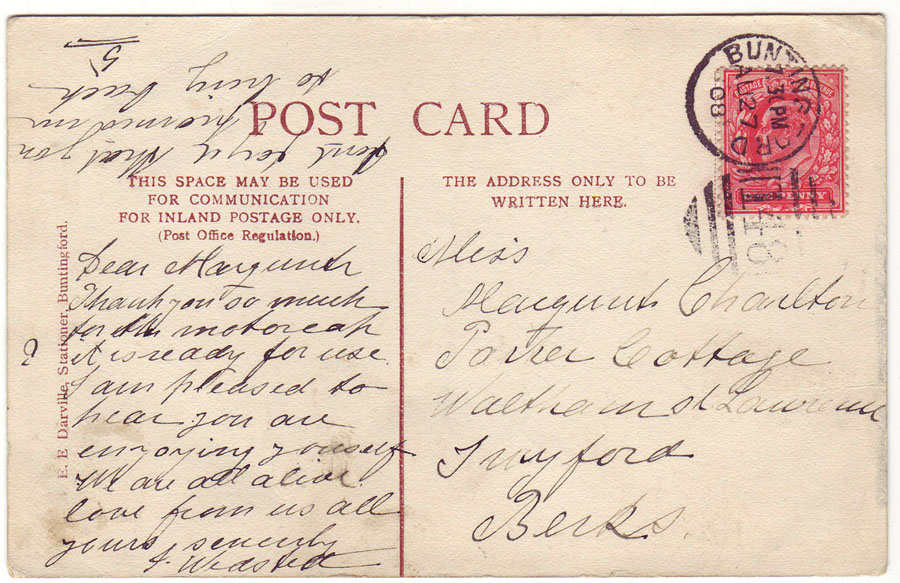 POST CARD
THIS SPACE MAY BE USED
FOR COMMUNICATION
FOR INLAND POSTAGE ONLY.
(Post Office Regulation.)
THE ADDRESS ONLY TO BE
WRITTEN HERE.
E. E Darville, Stationer, Buntingford.
BUNTINGFORD
PM
AU 27
08
POSTAGE REVENUE
PENNY
Dear Marguerite
Thank you so much
for the motorcap
it is ready for use.
?
I am pleased to
hear you are
enjoying yourself
We are all alive
love from us all
yours sincerely
dont forget that you
to bring back
5/
Miss
Marguerite Charlton
Cottage
Waltham St Lawrence
Twyford
Berks.